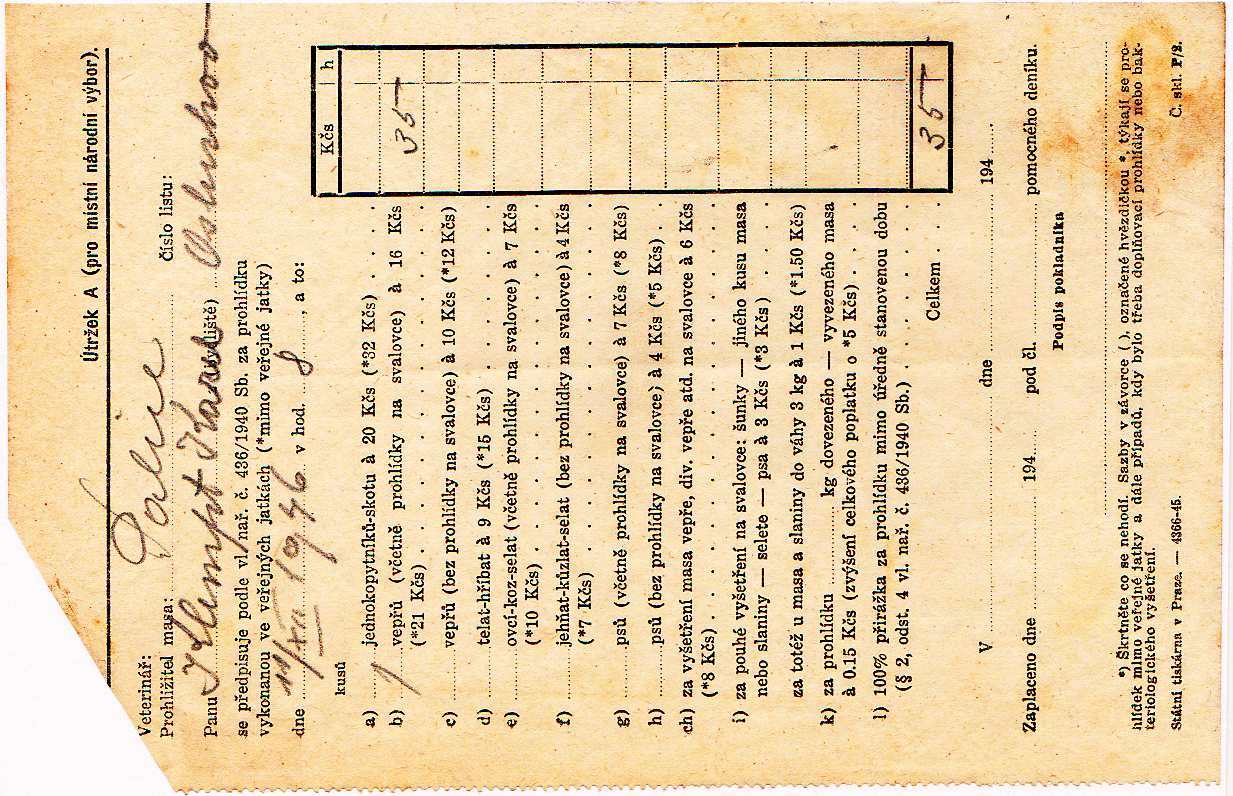 Útržek A (pro místní národní výbor).
Veterinář:
Prohlížitel masa: číslo listu:
Panu
se předpisuje podle vl. nař. č. 436/1940 Sb. za prohlídku
vykonanou ve veřejných jatkách (*mimo veřejné jatky)
dne 1946 v hod. 8, a to:
kusů Kčs h
a) jednokopytníků-skotu à 20 Kčs (*32 Kčs) . . . .
b) 1 vepřů (včetně prohlídky na svalovce) à 16 Kčs 35
(*21 Kčs) . . . . . . . . .
c) vepřů (bez prohlídky na svalovce) à 10 Kčs (*12 Kčs)
d) telat-hříbat à 9 Kčs (*15 Kčs) . . . . . .
e) ovcí-koz-selat (včetně prohlídky na svalovce) à 7 Kčs
(*10 Kčs) . . . . . . . . .
f) jehňat-kůzlat-selat (bez prohlídky na svalovce) à 4 Kčs
(*7 Kčs) . . . . . . . . .
g) psů (včetně prohlídky na svalovce) à 7 Kčs (*8 Kčs)
h) psů (bez prohlídky na svalovce) à 4 Kčs (*5 Kčs) . .
ch) za vyšetření masa vepře, div. vepře atd. na svalovce à 6 Kčs
(*8 Kčs) . . . . . . . . .
i) za pouhé vyšetření na svalovce: šunky — jiného kusu masa
nebo slaniny — selete — psa à 3 Kčs (*3 Kčs) . . .
za totéž u masa a slaniny do váhy 3 kg à 1 Kčs (*1.50 Kčs)
k) za prohlídku kg dovezeného — vyvezeného masa
à 0.15 Kčs (zvýšení celkového poplatku o *5 Kčs) . . .
l) 100% přirážka za prohlídku mimo úředně stanovenou dobu
(§ 2, odst. 4 vl. nař. č. 436/1940 Sb.) . . . . . .
Celkem . . . 35
V dne 194
Zaplaceno dne 194 pod čl. pomocného deníku.
Podpis pokladníka
*) Škrtněte co se nehodí. Sazby v závorce ( ), označené hvězdičkou *, týkají se pro-
hlídek mimo veřejné jatky a dále případů, kdy bylo třeba doplňovací prohlídky nebo bak-
teriologického vyšetření.
Státní tiskárna v Praze. — 4366-45. Č. skl. P/2.